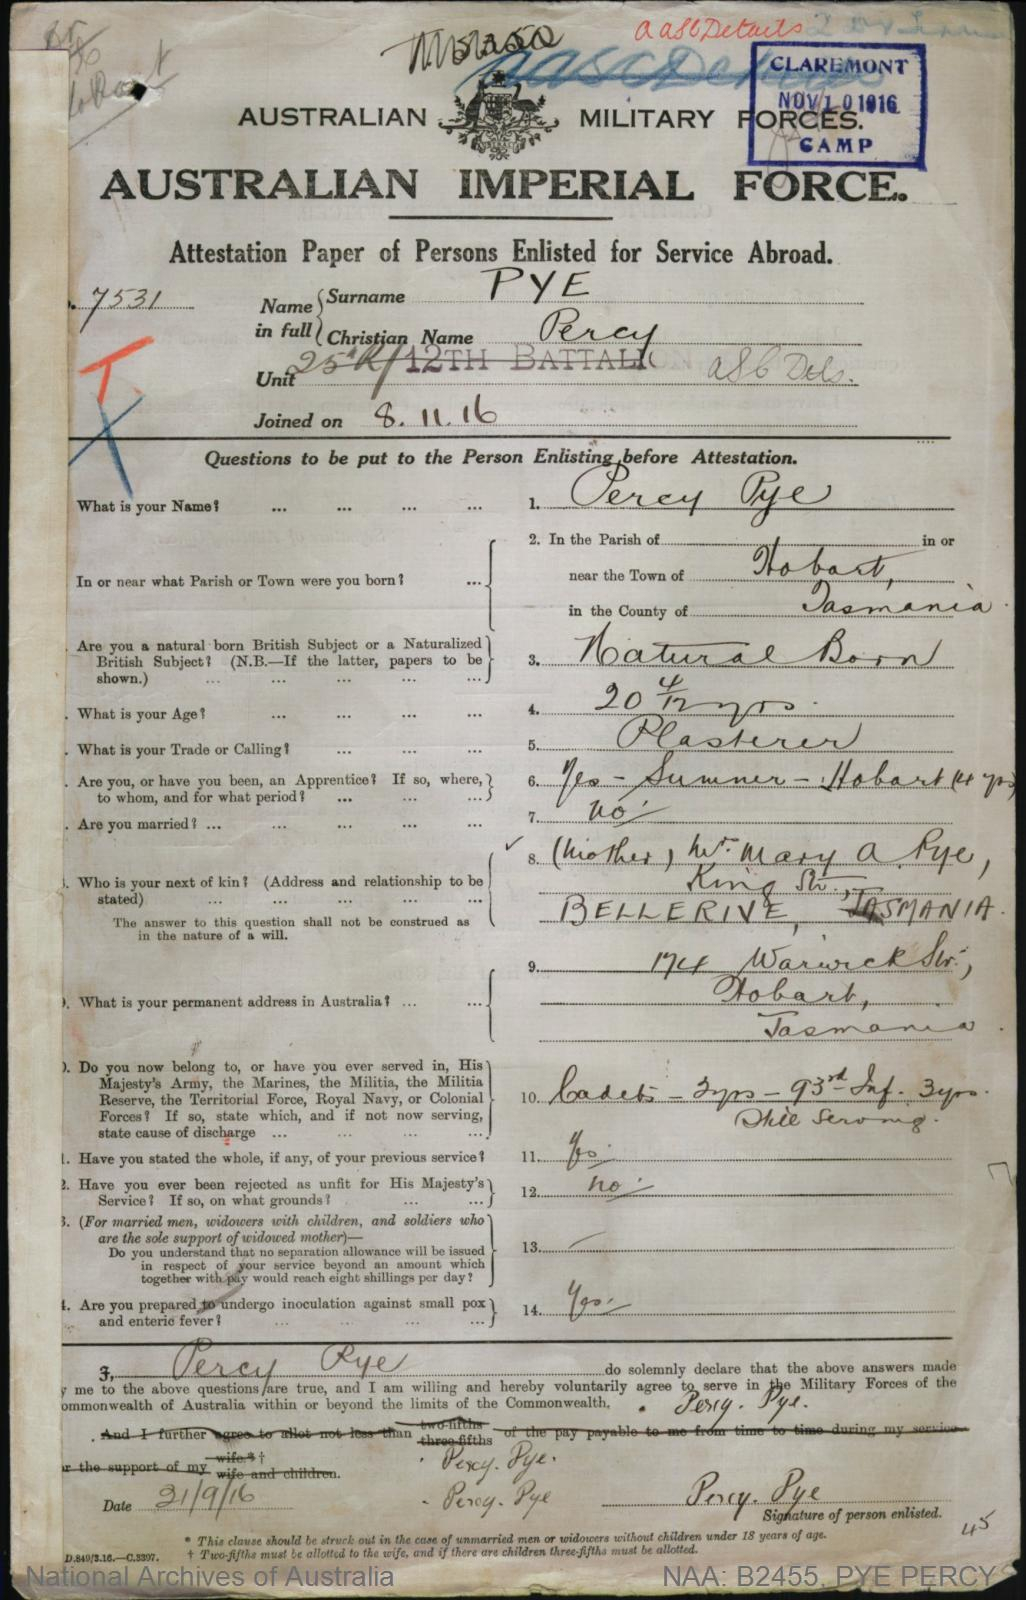 A ASC Details
AASC Details
CLAREMONT
NOV 10 1916
CAMP
AUSTRALIAN MILITARY FORCES.
AUSTRALIAN IMPERIAL FORCE.
Attestation Paper of Persons Enlisted for Service Abroad.
. 7531
Name in full { Surname PYE
Christian Name Percy
Unit 25th R/ 12TH BATTALION ASC Dets.
Joined on 8.11.16
Questions to be put to the Person Enlisting before Attestation.
What is your Name? ... ... ... ... 1. Percy Pye
In or near what Parish or Town were you born? ... 2. In the Parish of in or
near the Town of Hobart,
in the County of Tasmania.
Are you a natural born British Subject or a Naturalized
British Subject? (N.B.—If the latter, papers to be
shown.) ... ... ... ... 3. Natural Born
. What is your Age? ... ... ... ... 4. 20 4/12 yrs.
. What is your Trade or Calling? ... ... ... 5. Plasterer
. Are you, or have you been, an Apprentice? If so, where,
to whom, and for what period? ... ... ... 6. Yes - Sumner - Hobart (4 yrs)
. Are you married? ... ... ... ... ... 7. No.
. Who is your next of kin? (Address and relationship to be
stated) ... ... ... ... ... 8. (Mother) Mrs. Mary A. Pye,
King St.,
BELLERIVE, TASMANIA.
The answer to this question shall not be construed as
in the nature of a will.
. What is your permanent address in Australia? ... ... 9. 174 Warwick Str.,
Hobart,
Tasmania.
. Do you now belong to, or have you ever served in, His
Majesty's Army, the Marines, the Militia, the Militia
Reserve, the Territorial Force, Royal Navy, or Colonial
Forces? If so, state which, and if not now serving,
state cause of discharge ... ... ... ... 10. Cadets - 2yrs - 93rd Inf. 3yrs.
Still Serving.
1. Have you stated the whole, if any, of your previous service? 11. Yes
2. Have you ever been rejected as unfit for His Majesty's
Service? If so, on what grounds? ... ... 12. No.
3. (For married men, widowers with children, and soldiers who
are the sole support of widowed mother)—
Do you understand that no separation allowance will be issued
in respect of your service beyond an amount which
together with pay would reach eight shillings per day? 13. —
4. Are you prepared to undergo inoculation against small pox
and enteric fever? ... ... ... ... 14. Yes.
I, Percy Pye do solemnly declare that the above answers made
y me to the above questions are true, and I am willing and hereby voluntarily agree to serve in the Military Forces of the
ommonwealth of Australia within or beyond the limits of the Commonwealth. Percy. Pye.
And I further agree to allot not less than two-fifths three-fifths of the pay payable to me from time to time during my service
r the support of my wife.*† wife and children. Percy. Pye.
Date 21/9/16 Percy. Pye Percy. Pye
Signature of person enlisted.
45
* This clause should be struck out in the case of unmarried men or widowers without children under 18 years of age.
† Two-fifths must be allotted to the wife, and if there are children three-fifths must be allotted.
D.849/3.16.—C.3397.
National Archives of Australia NAA: B2455, PYE PERCY